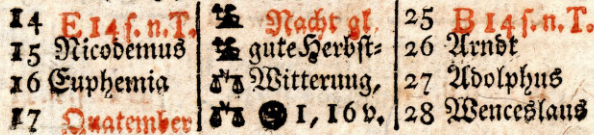 14 E 14 s. n. T. Nacht gl. 25 B 14 s. n. T.
15 Nicodemus gute Herbst- 26 Arndt
16 Euphemia Witterung, 27 Adolphus
17 Quatember 1, 16 v. 28 Wenceslaus